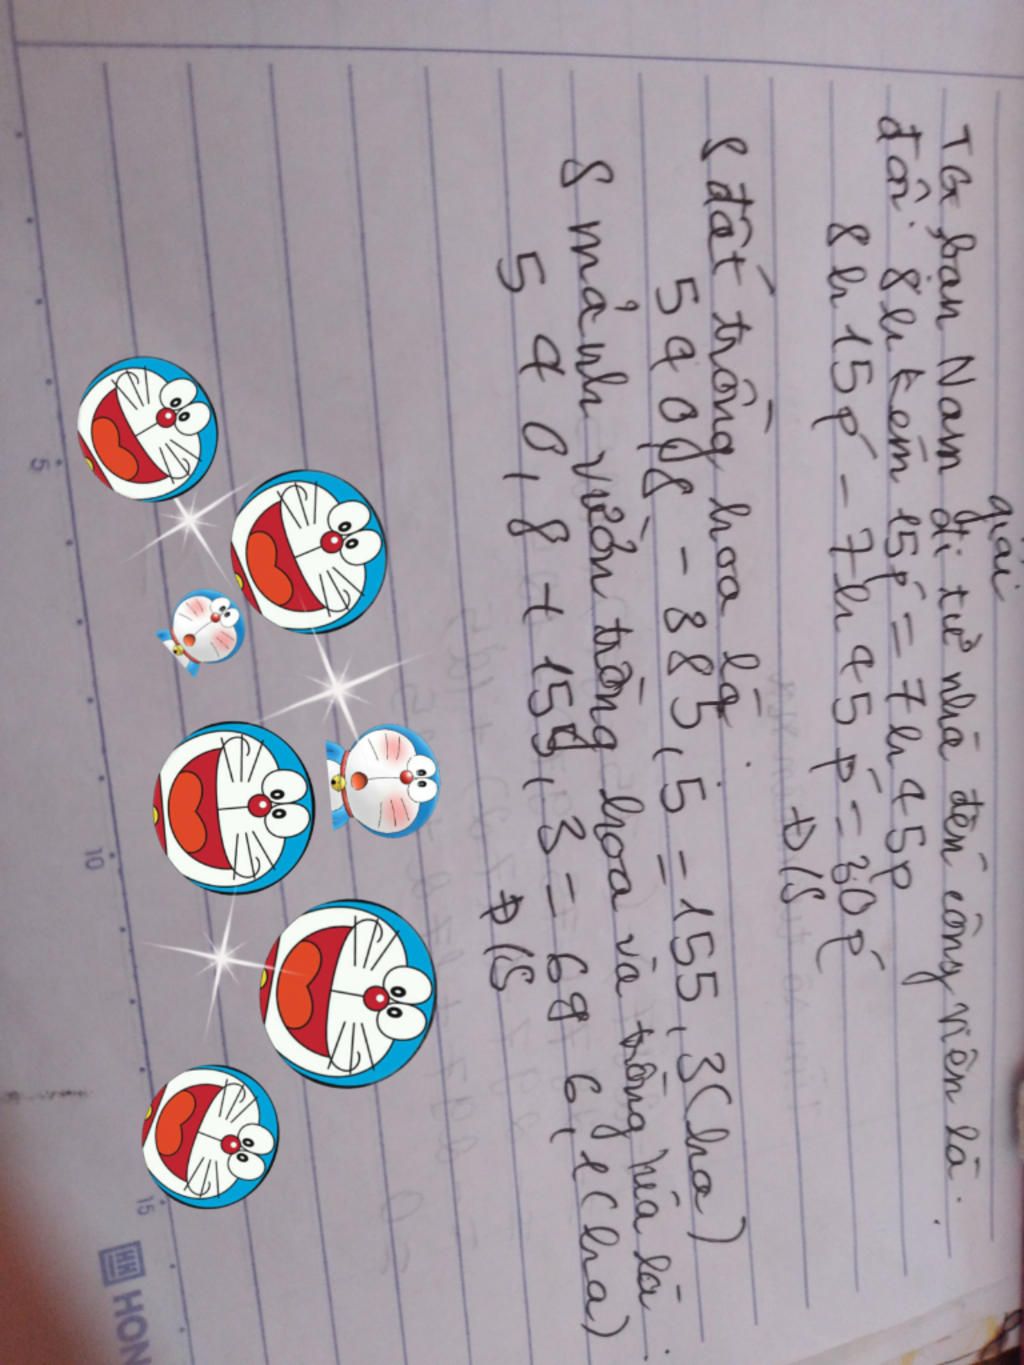 giải
TG bạn Nam đi từ nhà đến công viên là.
đổi: 8h kém 15p = 7h45p
8h15p - 7h45p = 30p
Đ/S
S đất trồng hoa là.
540,8 - 385,5 = 155,3(ha)
S mảnh vườn trồng hoa và trồng lúa là.
540,8 + 155,3 = 696,1(ha)
Đ/S
5
10
15
HH HON